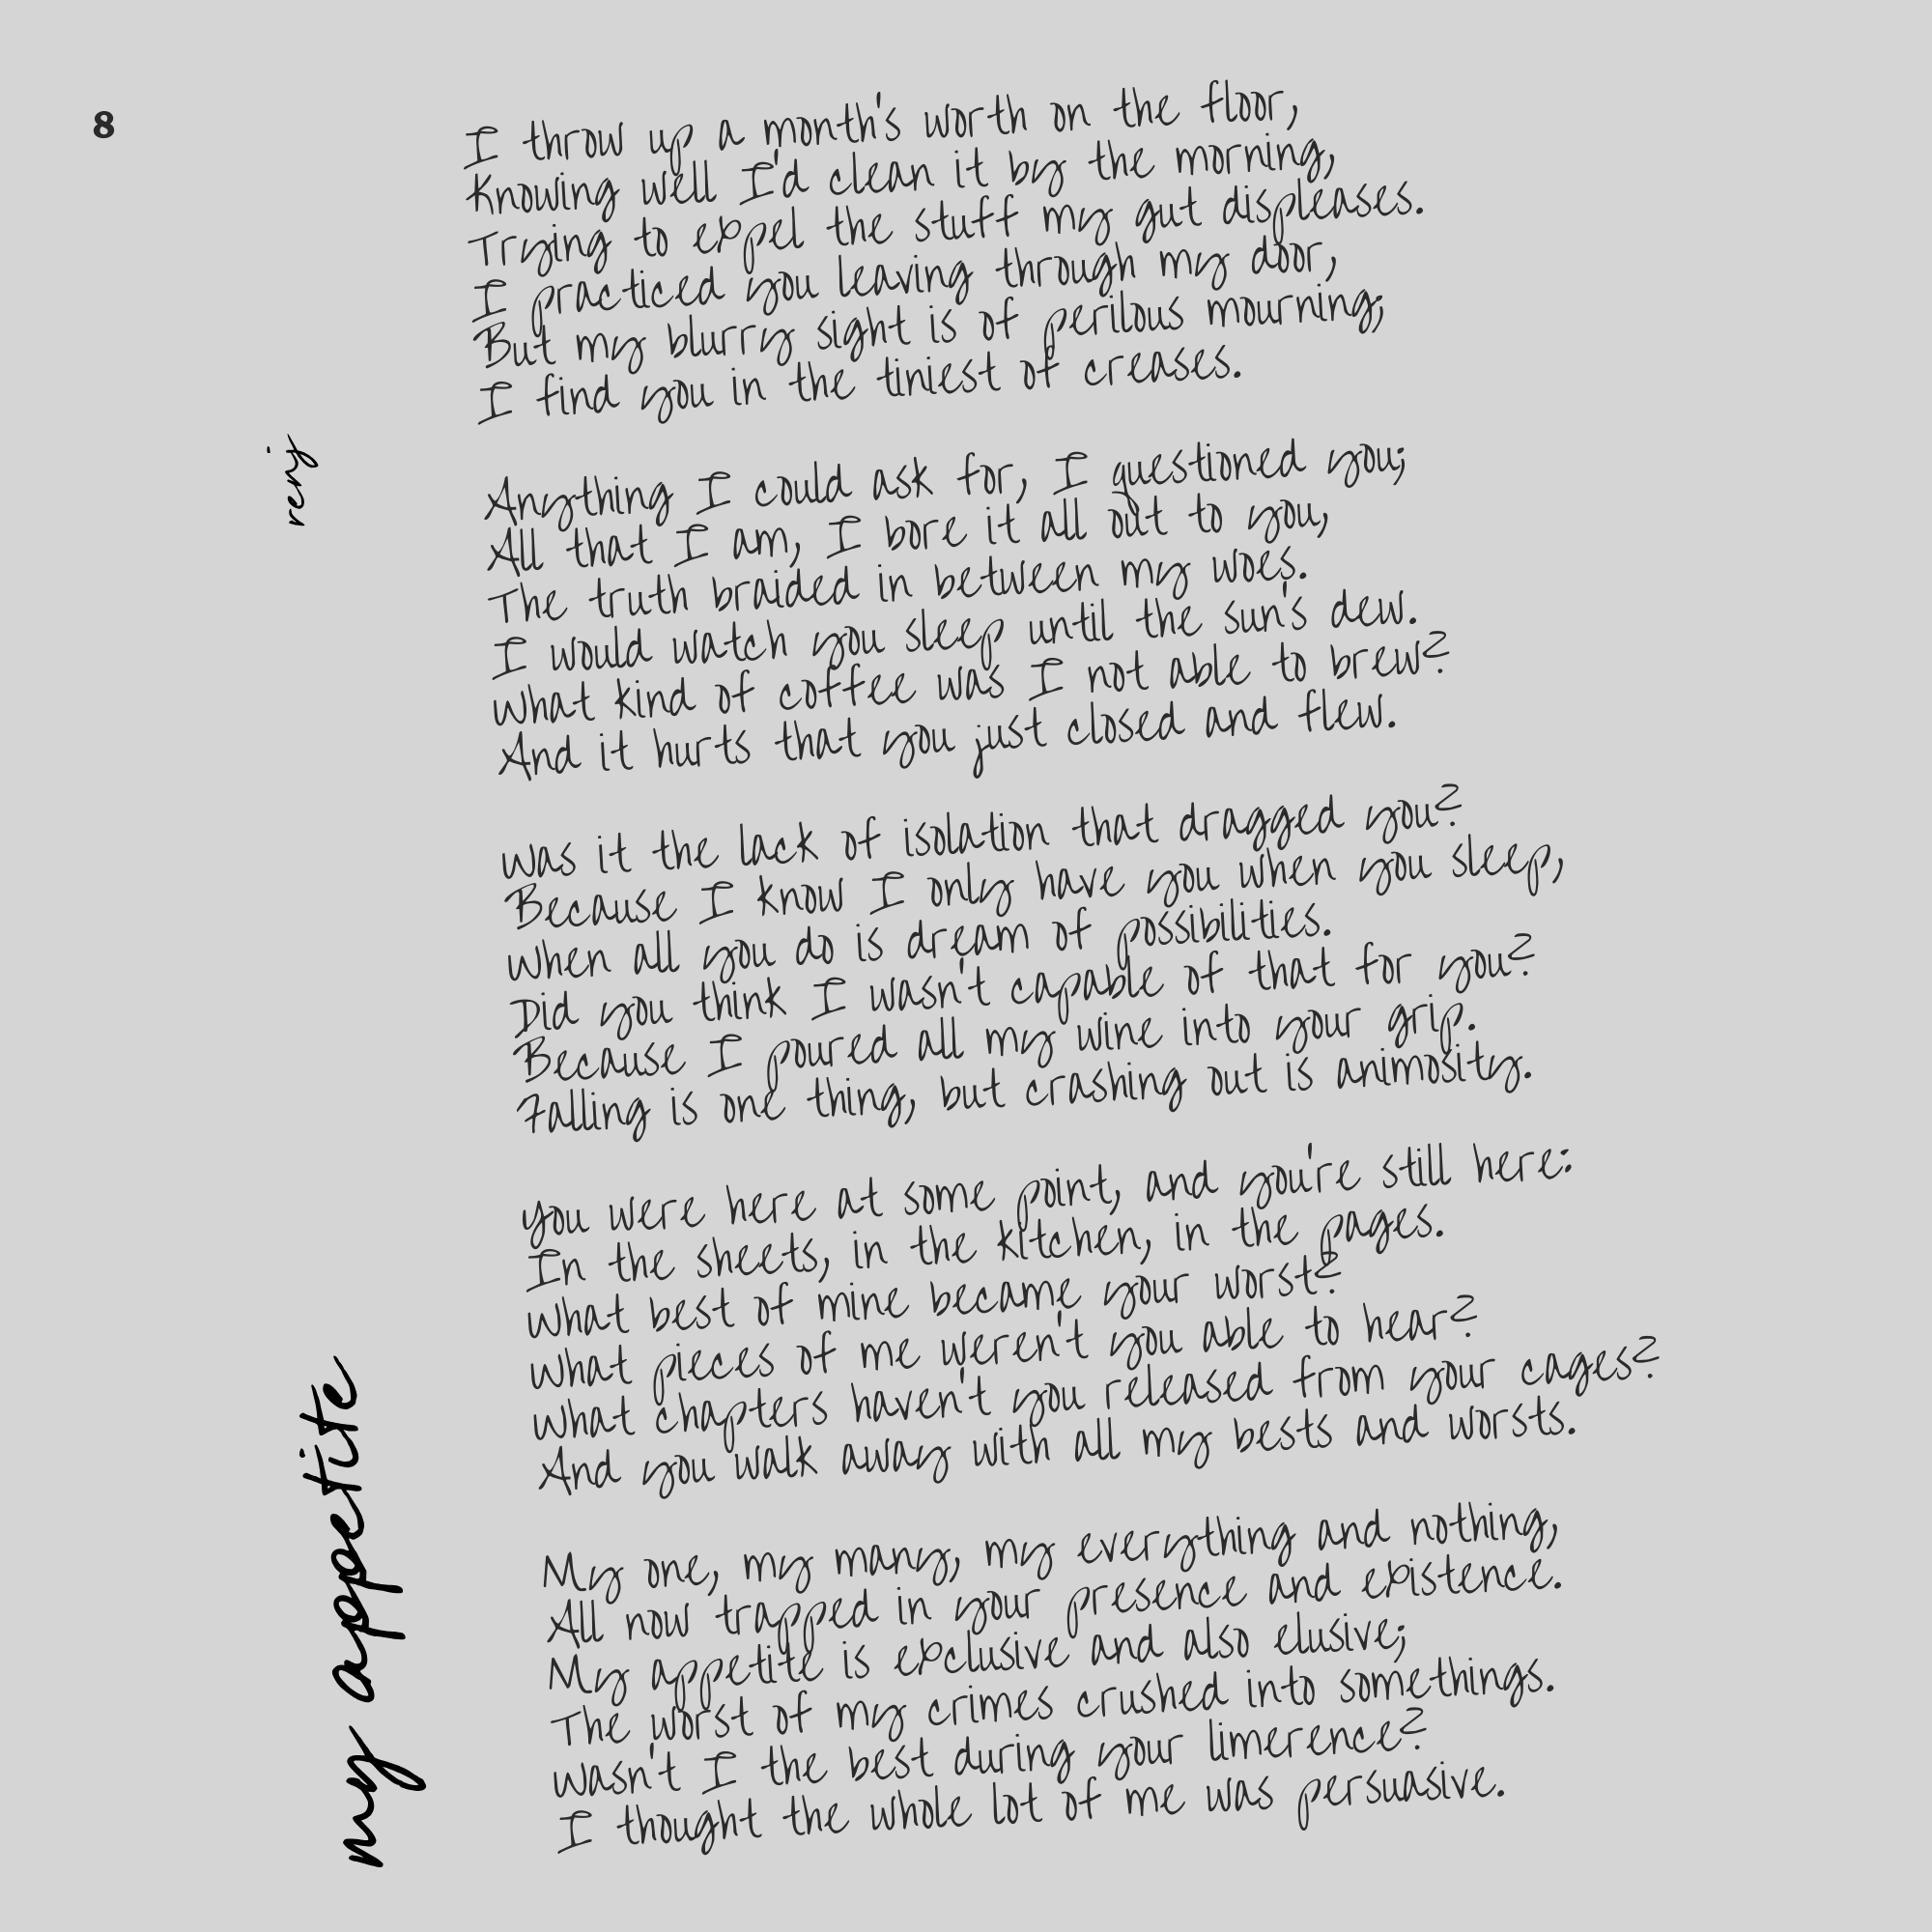 8
my appetite
renji
I throw up a month's worth on the floor,
Knowing well I'd clean it by the morning,
Trying to expel the stuff my gut displeases.
I practiced you leaving through my door,
But my blurry sight is of perilous mourning;
I find you in the tiniest of creases.
Anything I could ask for, I questioned you;
All that I am, I bore it all out to you,
The truth braided in between my woes.
I would watch you sleep until the sun's dew.
What kind of coffee was I not able to brew?
And it hurts that you just closed and flew.
Was it the lack of isolation that dragged you?
Because I know I only have you when you sleep,
When all you do is dream of possibilities.
Did you think I wasn't capable of that for you?
Because I poured all my wine into your grip.
Falling is one thing, but crashing out is animosity.
You were here at some point, and you're still here:
In the sheets, in the kitchen, in the pages.
What best of mine became your worst?
What pieces of me weren't you able to hear?
What chapters haven't you released from your cages?
And you walk away with all my bests and worsts.
My one, my many, my everything and nothing,
All now trapped in your presence and existence.
My appetite is exclusive and also elusive;
The worst of my crimes crushed into somethings.
Wasn't I the best during your limerence?
I thought the whole lot of me was persuasive.